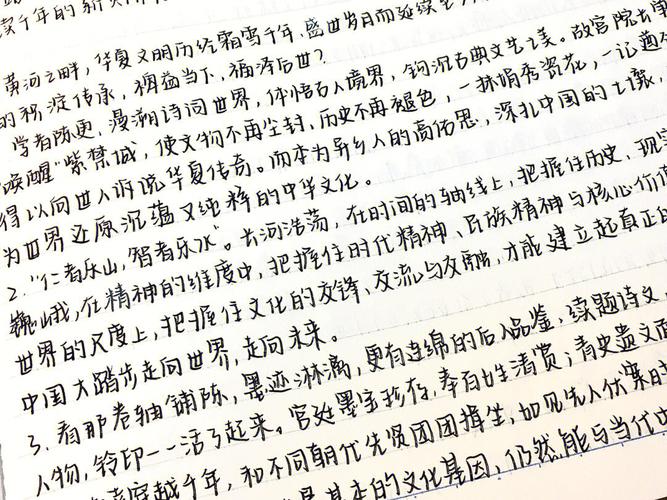 续千年的新
黄河之畔，华夏文明历经霜雪千年，盛世岁月而延续至
的积淀传承，裨益当下，福泽后世？
学者陈更，漫溯诗词世界，体悟古人境界，钩沉古典文艺之美。故宫院长单
"唤醒"紫禁城，使文物不再尘封，历史不再褪色，一抹娟秀瓷花，一记
得以向世人诉说华夏传奇。而本为异乡人的高佑思，深扎中国的土壤，
为世界还原沉蕴又纯粹的中华文化。
2."仁者乐山，智者乐水"。长河浩荡，在时间的轴线上，把握住历史、现
巍峨，在精神的维度中，把握住时代精神、民族精神与核心价值
世界的尺度上，把握住文化的交锋、交流与交融，才能建立起真正的
中国大踏步走向世界，走向未来。
3.看那卷轴铺陈，墨迹淋漓，更有连绵的后人品鉴，续题诗文，
人物，铃印一一活了起来。宫廷墨宝珍存，奉百姓清赏；青史遗文
穿越千年，和不同朝代先贤团团揖坐，如见先人伏案时
走的文化基因，仍然能与当代